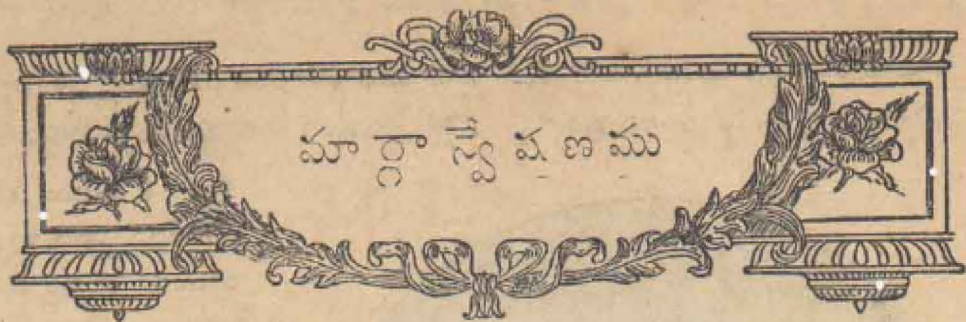 మార్గాన్వేషణము